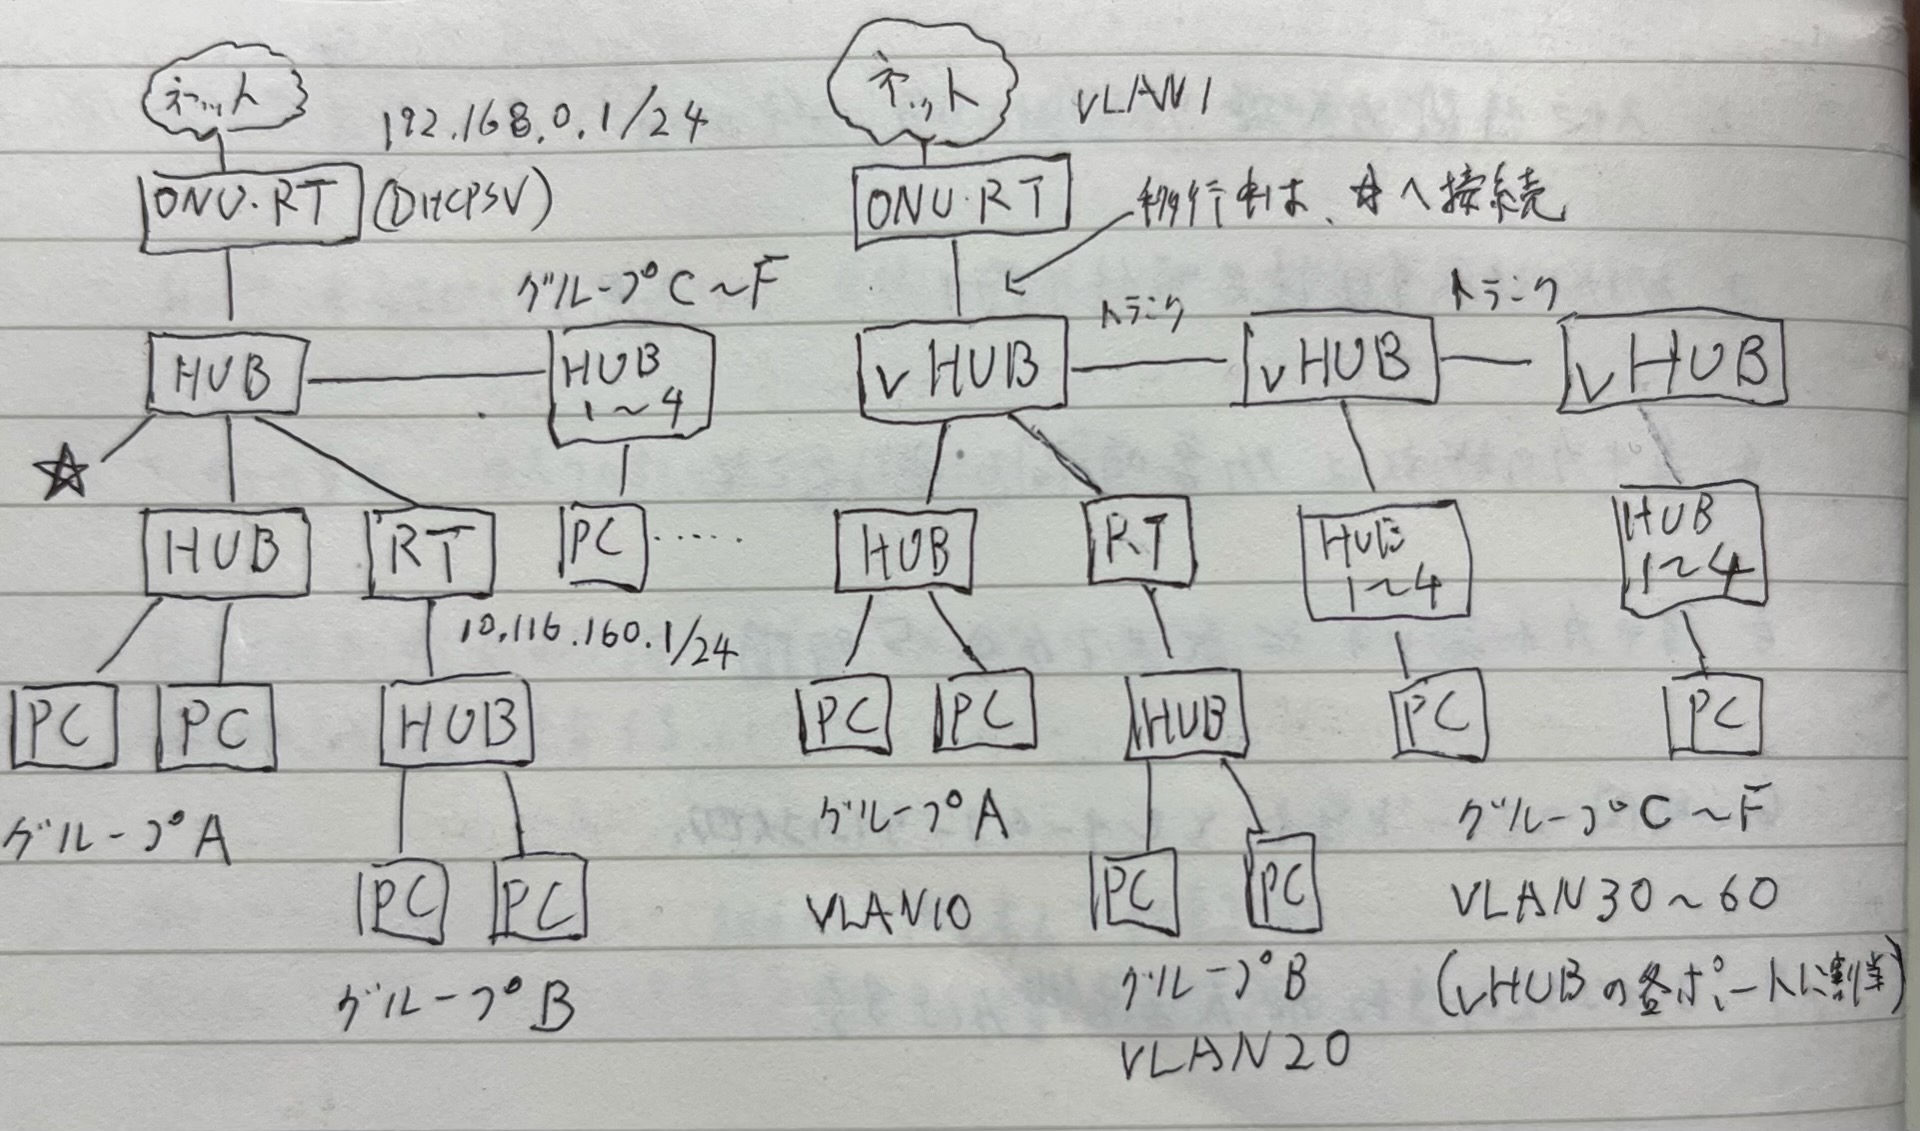 ネット
192.168.0.1/24
ONU・RT
(DHCPSV)
グループC～F
HUB
HUB
1～4
☆
HUB
RT
PC
10.116.160.1/24
PC
PC
HUB
グループA
PC
PC
グループB
ネット
VLAN1
ONU・RT
移行中は、☆へ接続
トランク
トランク
vHUB
vHUB
vHUB
HUB
RT
HUB
1～4
HUB
1～4
PC
PC
HUB
PC
PC
グループA
グループC～F
PC
PC
VLAN10
VLAN30～60
グループB
(vHUBの各ポートに割当)
VLAN20